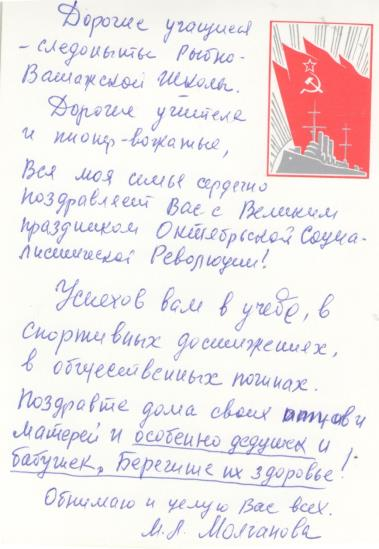 Дорогие учащиеся
-следопыты Рыбно-
Ватажской школы.
Дорогие учителя
и пионер-вожатые,
Вся моя семья сердечно
поздравляет Вас с Великим
праздником Октябрьской Социа-
листической Революции!
Успехов вам в учебе, в
спортивных достижениях,
в общественных починах.
Поздравте дома своих отцов и
матерей и особенно дедушек и
бабушек, Берегите их здоровье!
Обнимаю и целую Вас всех.
М.Л. Молчанова